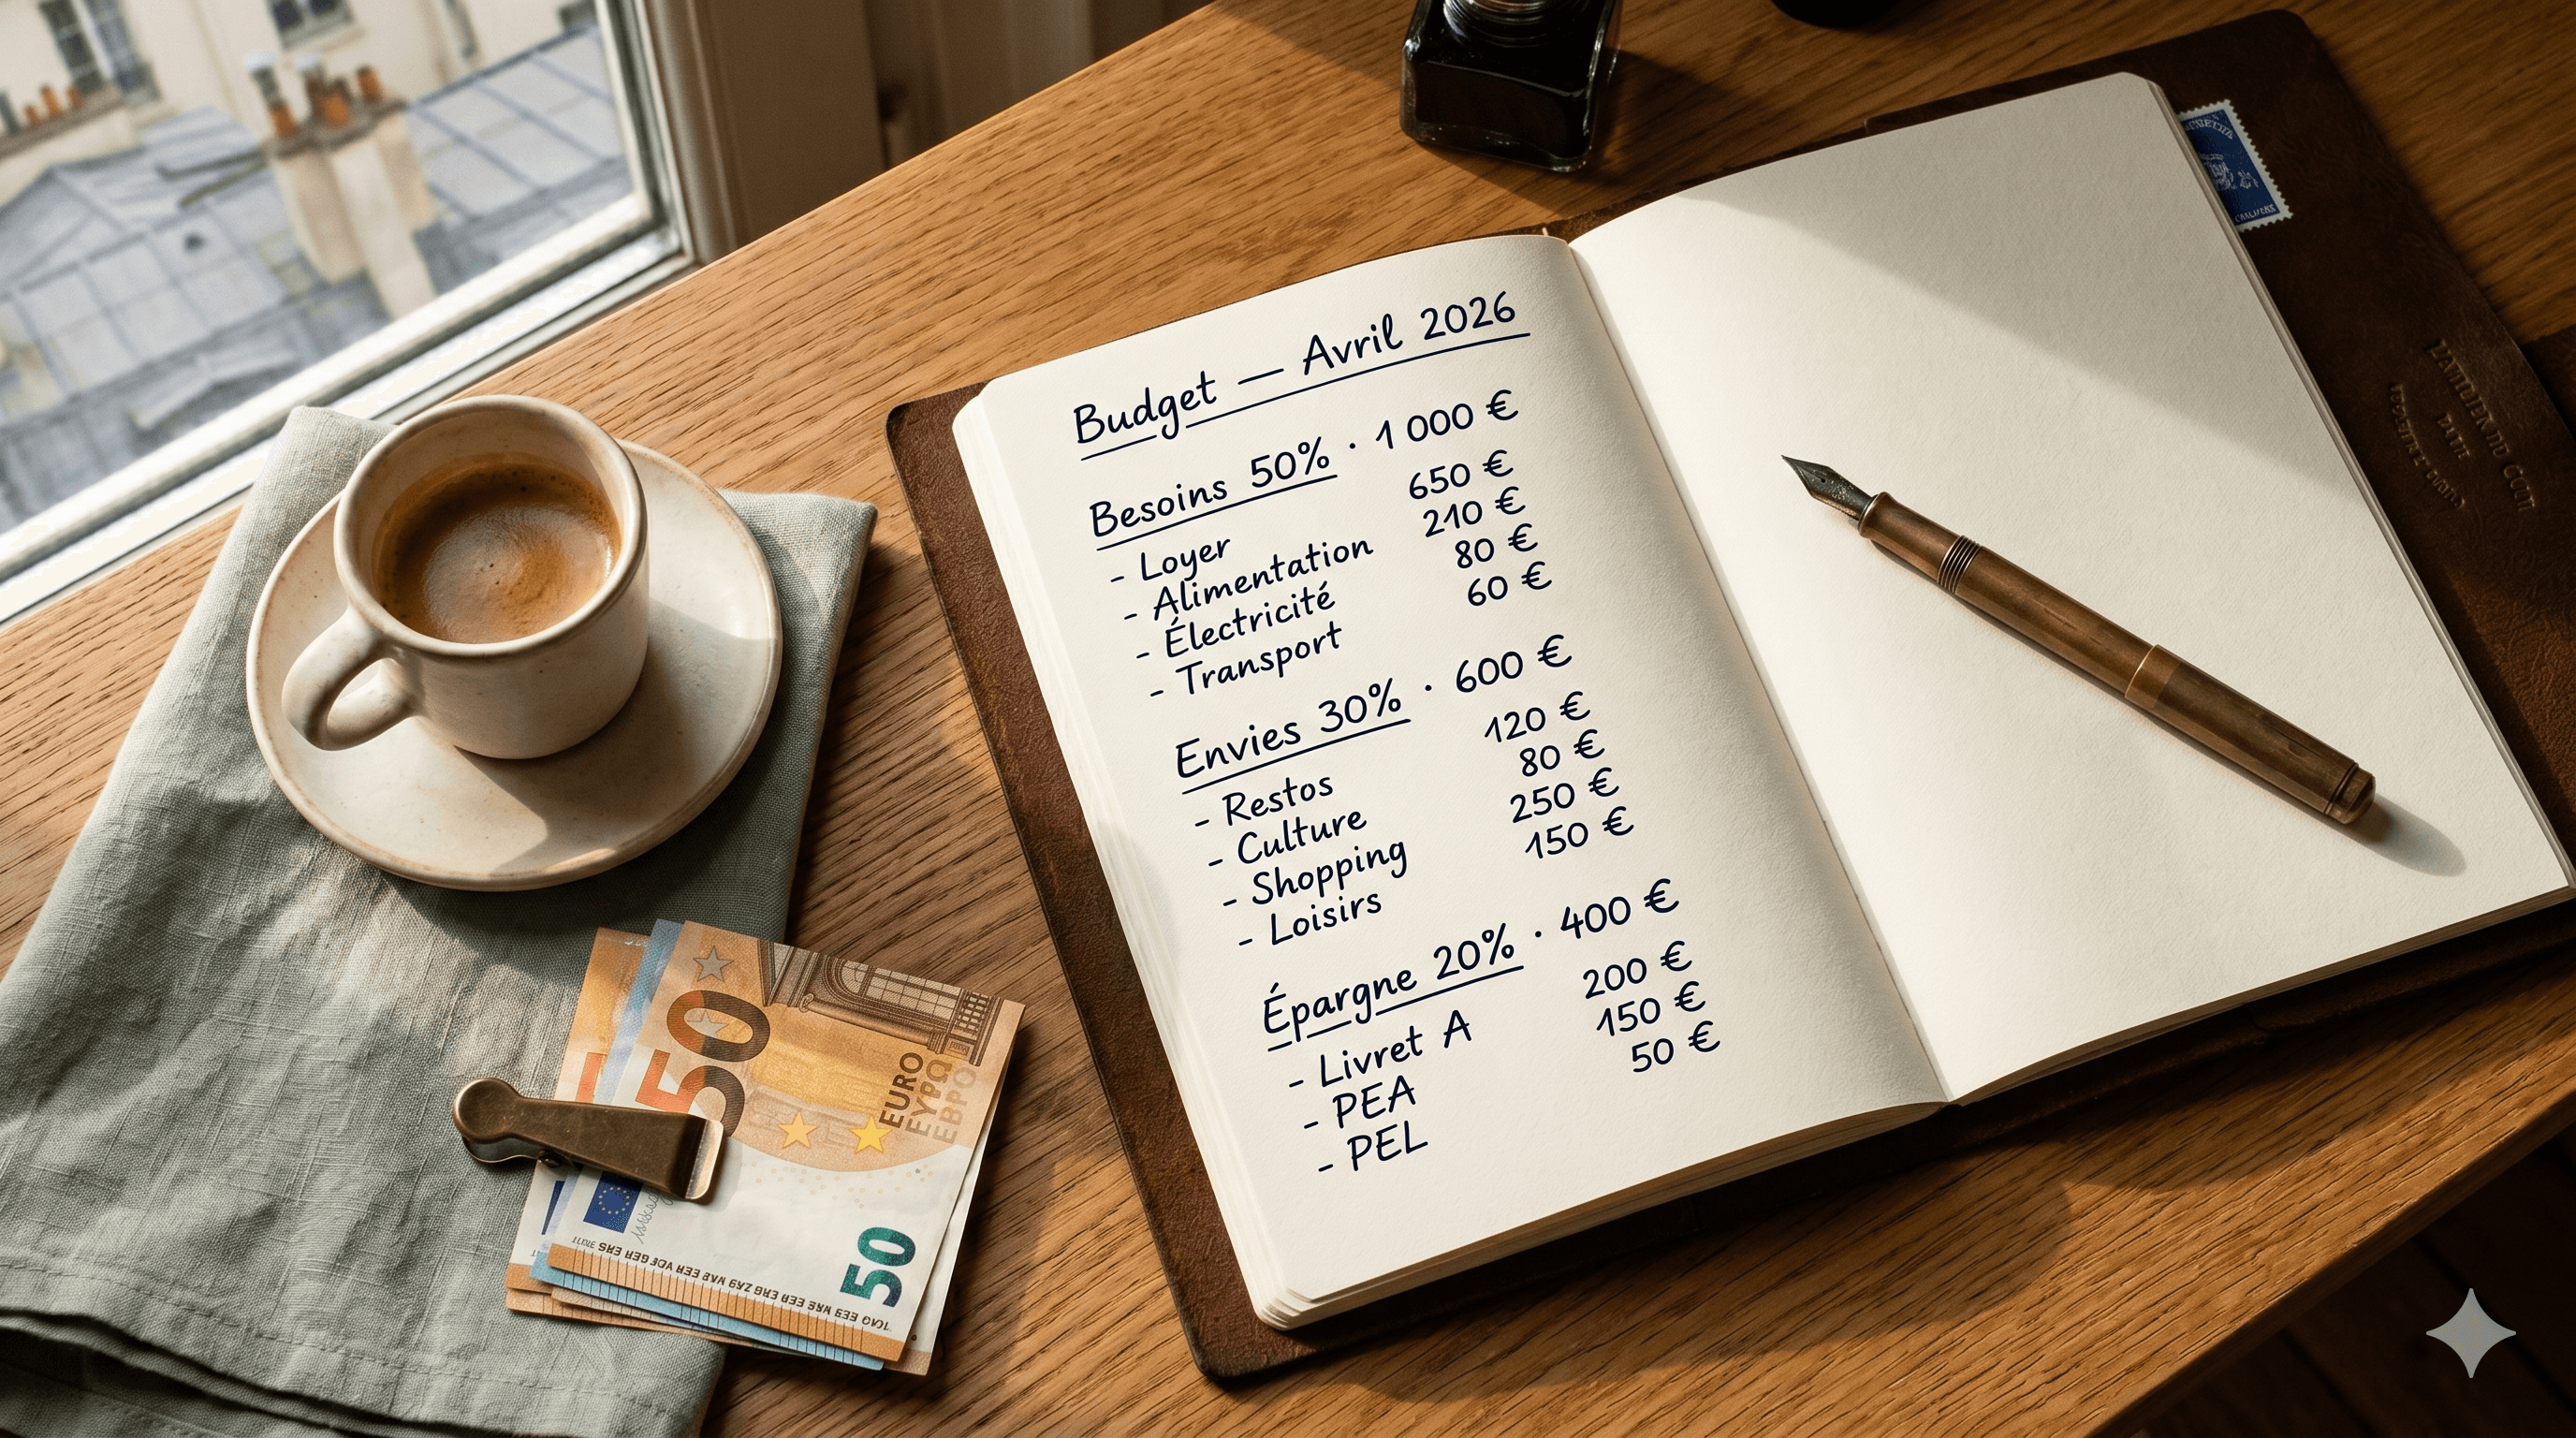 Budget — Avril 2026
Besoins 50% · 1 000 €
- Loyer 650 €
- Alimentation 210 €
- Électricité 80 €
- Transport 60 €
Envies 30% · 600 €
- Restos 120 €
- Culture 80 €
- Shopping 250 €
- Loisirs 150 €
Épargne 20% · 400 €
- Livret A 200 €
- PEA 150 €
- PEL 50 €
50
EURO
ΕΥΡΩ
ЕВРО
50